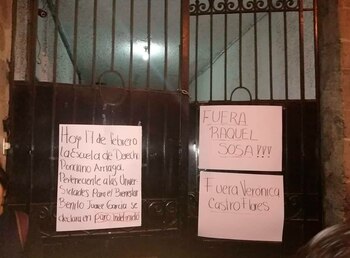 Hoy 17 de febrero
La Escuela de Derecho
Ponciano Arriaga
Perteneciente a las Univer-
sidades Para el Bienestar
Benito Juárez García se
declara en paro Indefinido
FUERA
RAQUEL
SOSA!!!
Fuera Verónica
Castro Flores